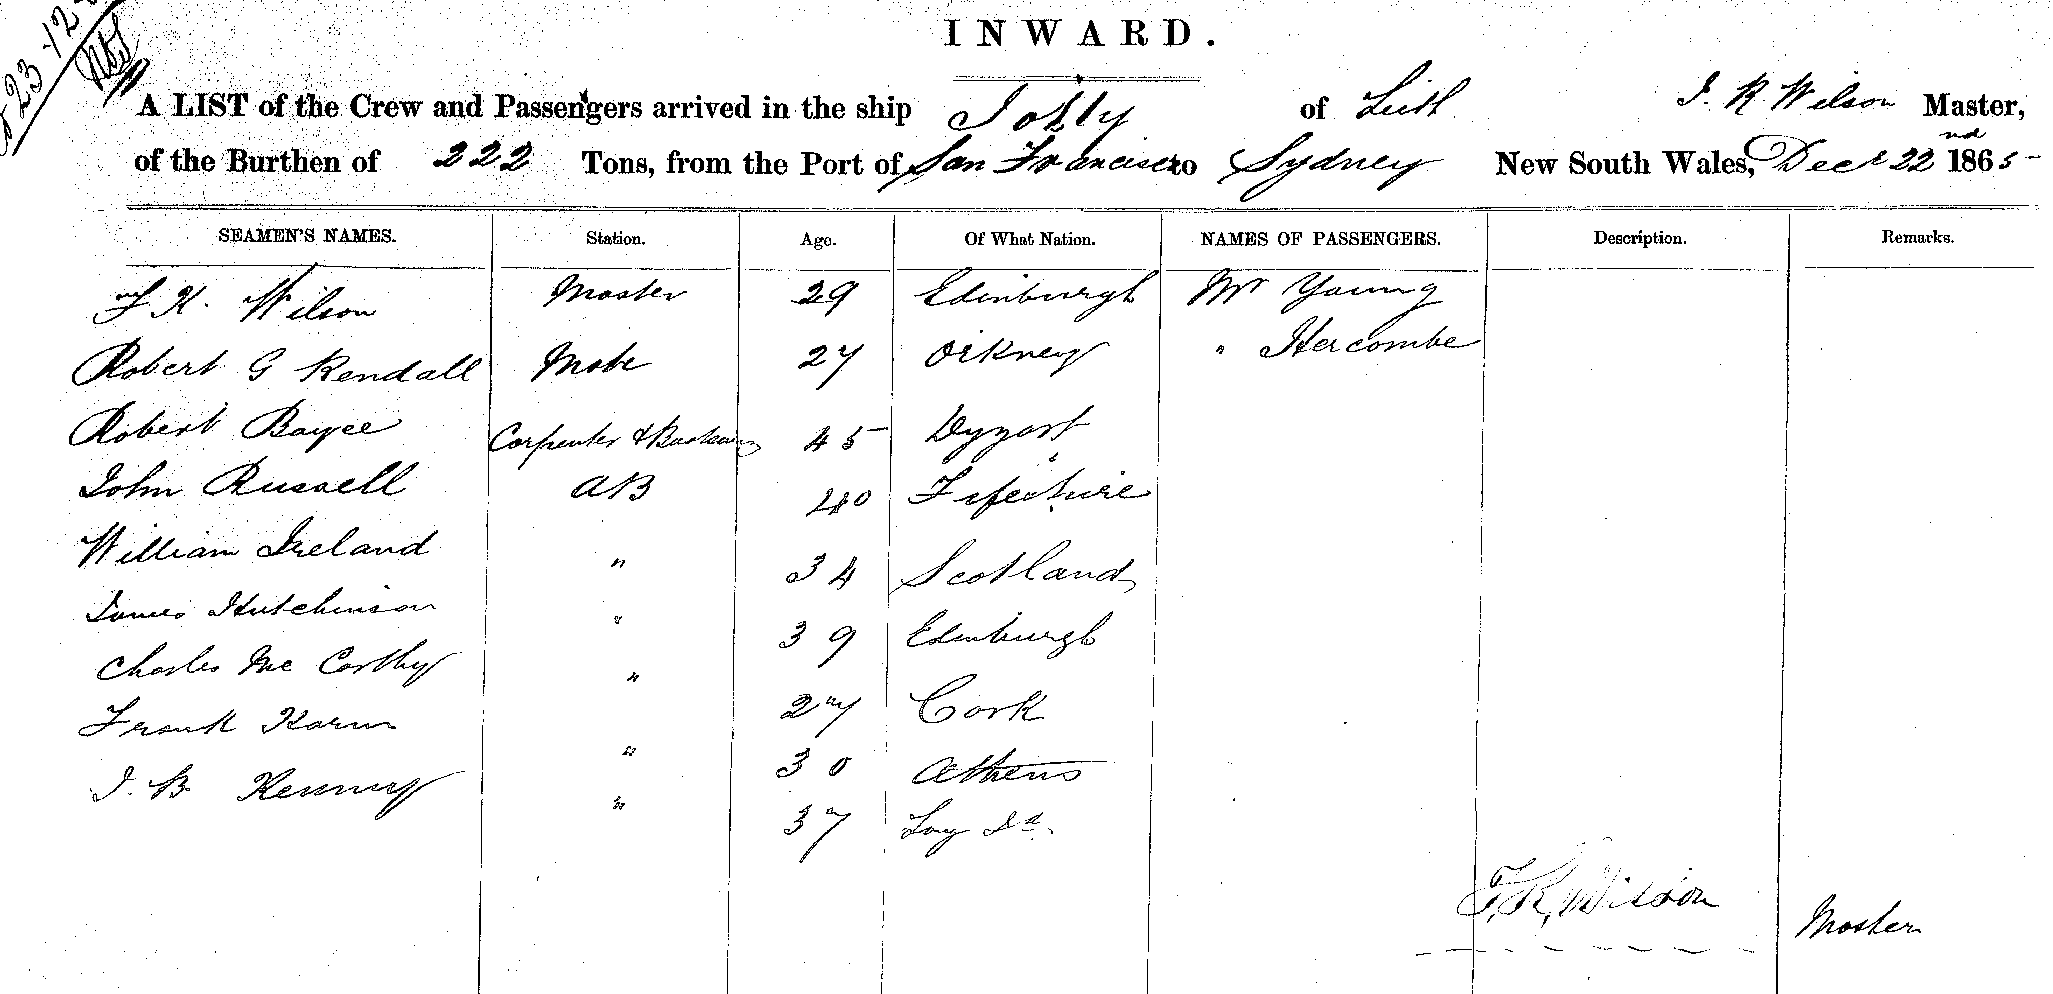 23-12
INWARD.
A LIST of the Crew and Passengers arrived in the ship Jolly of Leith J. R Wilson Master,
of the Burthen of 222 Tons, from the Port of San Francisco to Sydney New South Wales, Decr 22nd 1865
SEAMEN'S NAMES. Station. Age. Of What Nation. NAMES OF PASSENGERS. Description. Remarks.
Wilson Master 29 Edinburgh Mr Young
Robert G Rendall Mate 27 Orkney " Hercombe
Robert Boyce Carpenter & 45 Dyzart
John Russell AB 40 Fifeshire
William Ireland " 34 Scotland
James Hutchinson " 39 Edinburgh
Charles Mc Carthy " 27 Cork
Frank " 30 Athens
J. B " 37
Wilson Master